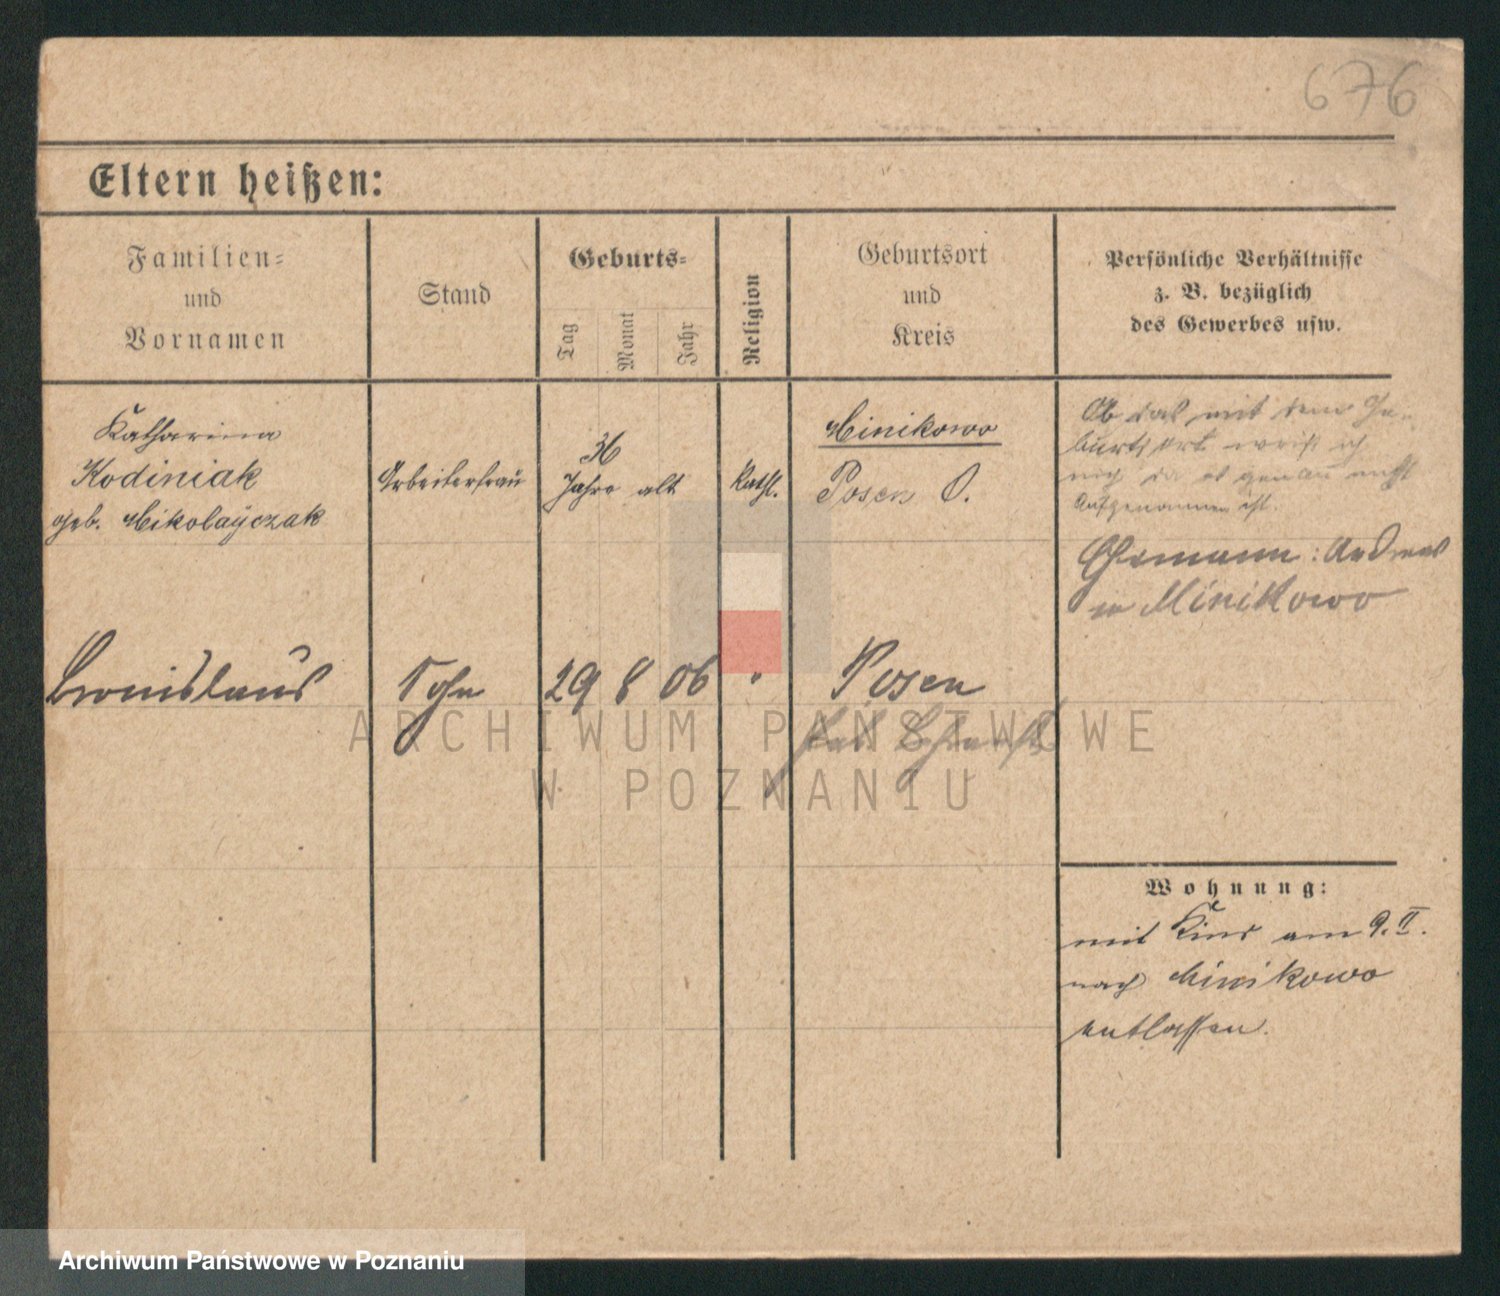 676
Eltern heißen:
Familien-
und
Vornamen
Stand
Geburts-
Tag
Monat
Jahr
Religion
Geburtsort
und
Kreis
Persönliche Verhältnisse
z. B. bezüglich
des Gewerbes usw.
Katharina
Kodiniak
geb. Mikolayczak
Arbeiterfrau
36
Jahre alt
Kath.
Minikowo
Posen O.
Ob das mit dem Ge-
burtsort weiß ich
nich da es genau nicht
aufgenommen ist.
Ehemann: Andreas
in Minikowo
Bronislaus
Sohn
29 8 06
"
Posen
ARCHIWUM PAŃSTWOWE
W POZNANIU
Wohnung:
mit Kind am 9. II.
nach Minikowo
entlassen.
Archiwum Państwowe w Poznaniu